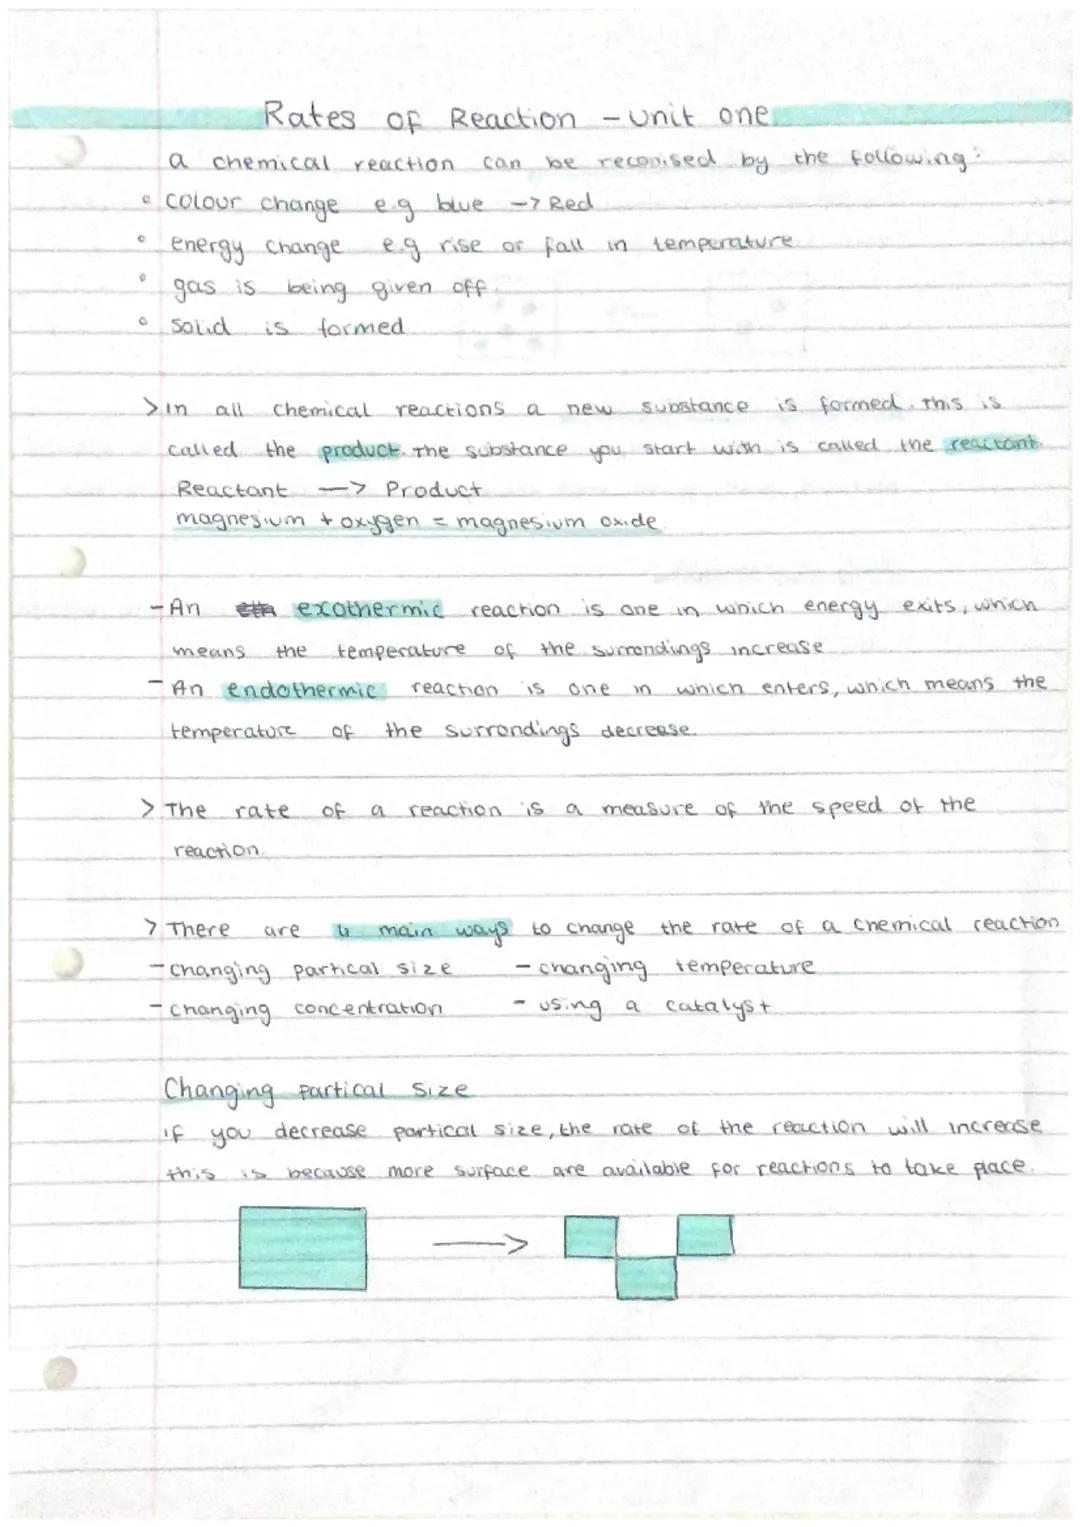 Rates of Reaction - unit one
a chemical reaction can be reconised by the following:
• colour change e.g blue -> Red
• energy change e.g rise or fall in temperature
• gas is being given off.
• Solid is formed
> in all chemical reactions a new substance is formed. This is
called the product. The substance you start with is called the reactant.
Reactant -> Product
magnesium + oxygen = magnesium oxide
- An exothermic reaction is one in which energy exits, which
means the temperature of the surrondings increase
- An endothermic reaction is one in which enters, which means the
temperature of the surrondings decrease.
> The rate of a reaction is a measure of the speed of the
reaction.
> There are 4 main ways to change the rate of a chemical reaction
- changing partical size - changing temperature
- changing concentration - using a catalyst
Changing partical size
if you decrease partical size, the rate of the reaction will increase
this is because more surface are available for reactions to take place.